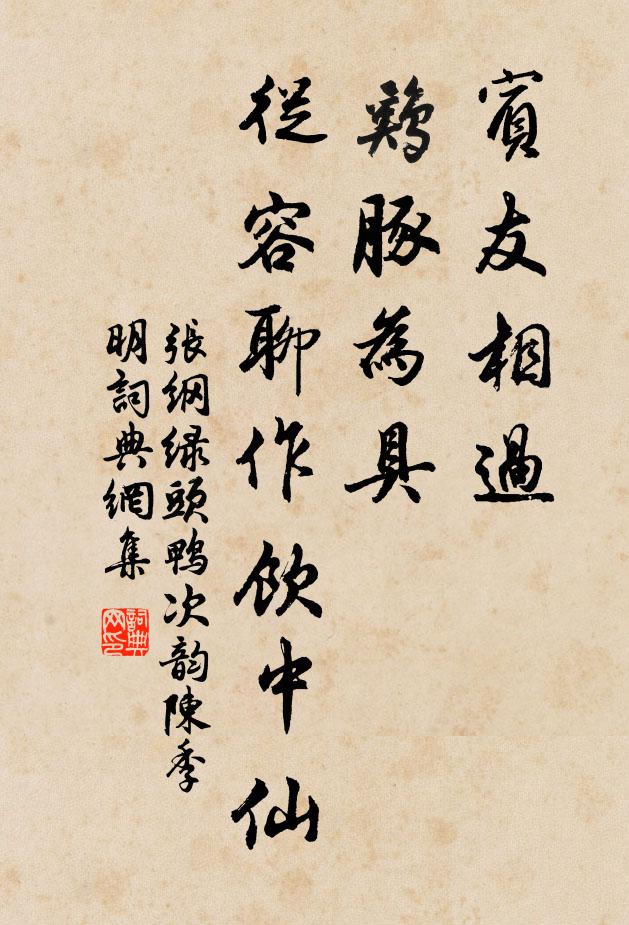 賓友相過
鷄豚為具
從容聊作飲中仙
張綱緑頭鴨次韵陳季
明詞典網集
詞典
网印